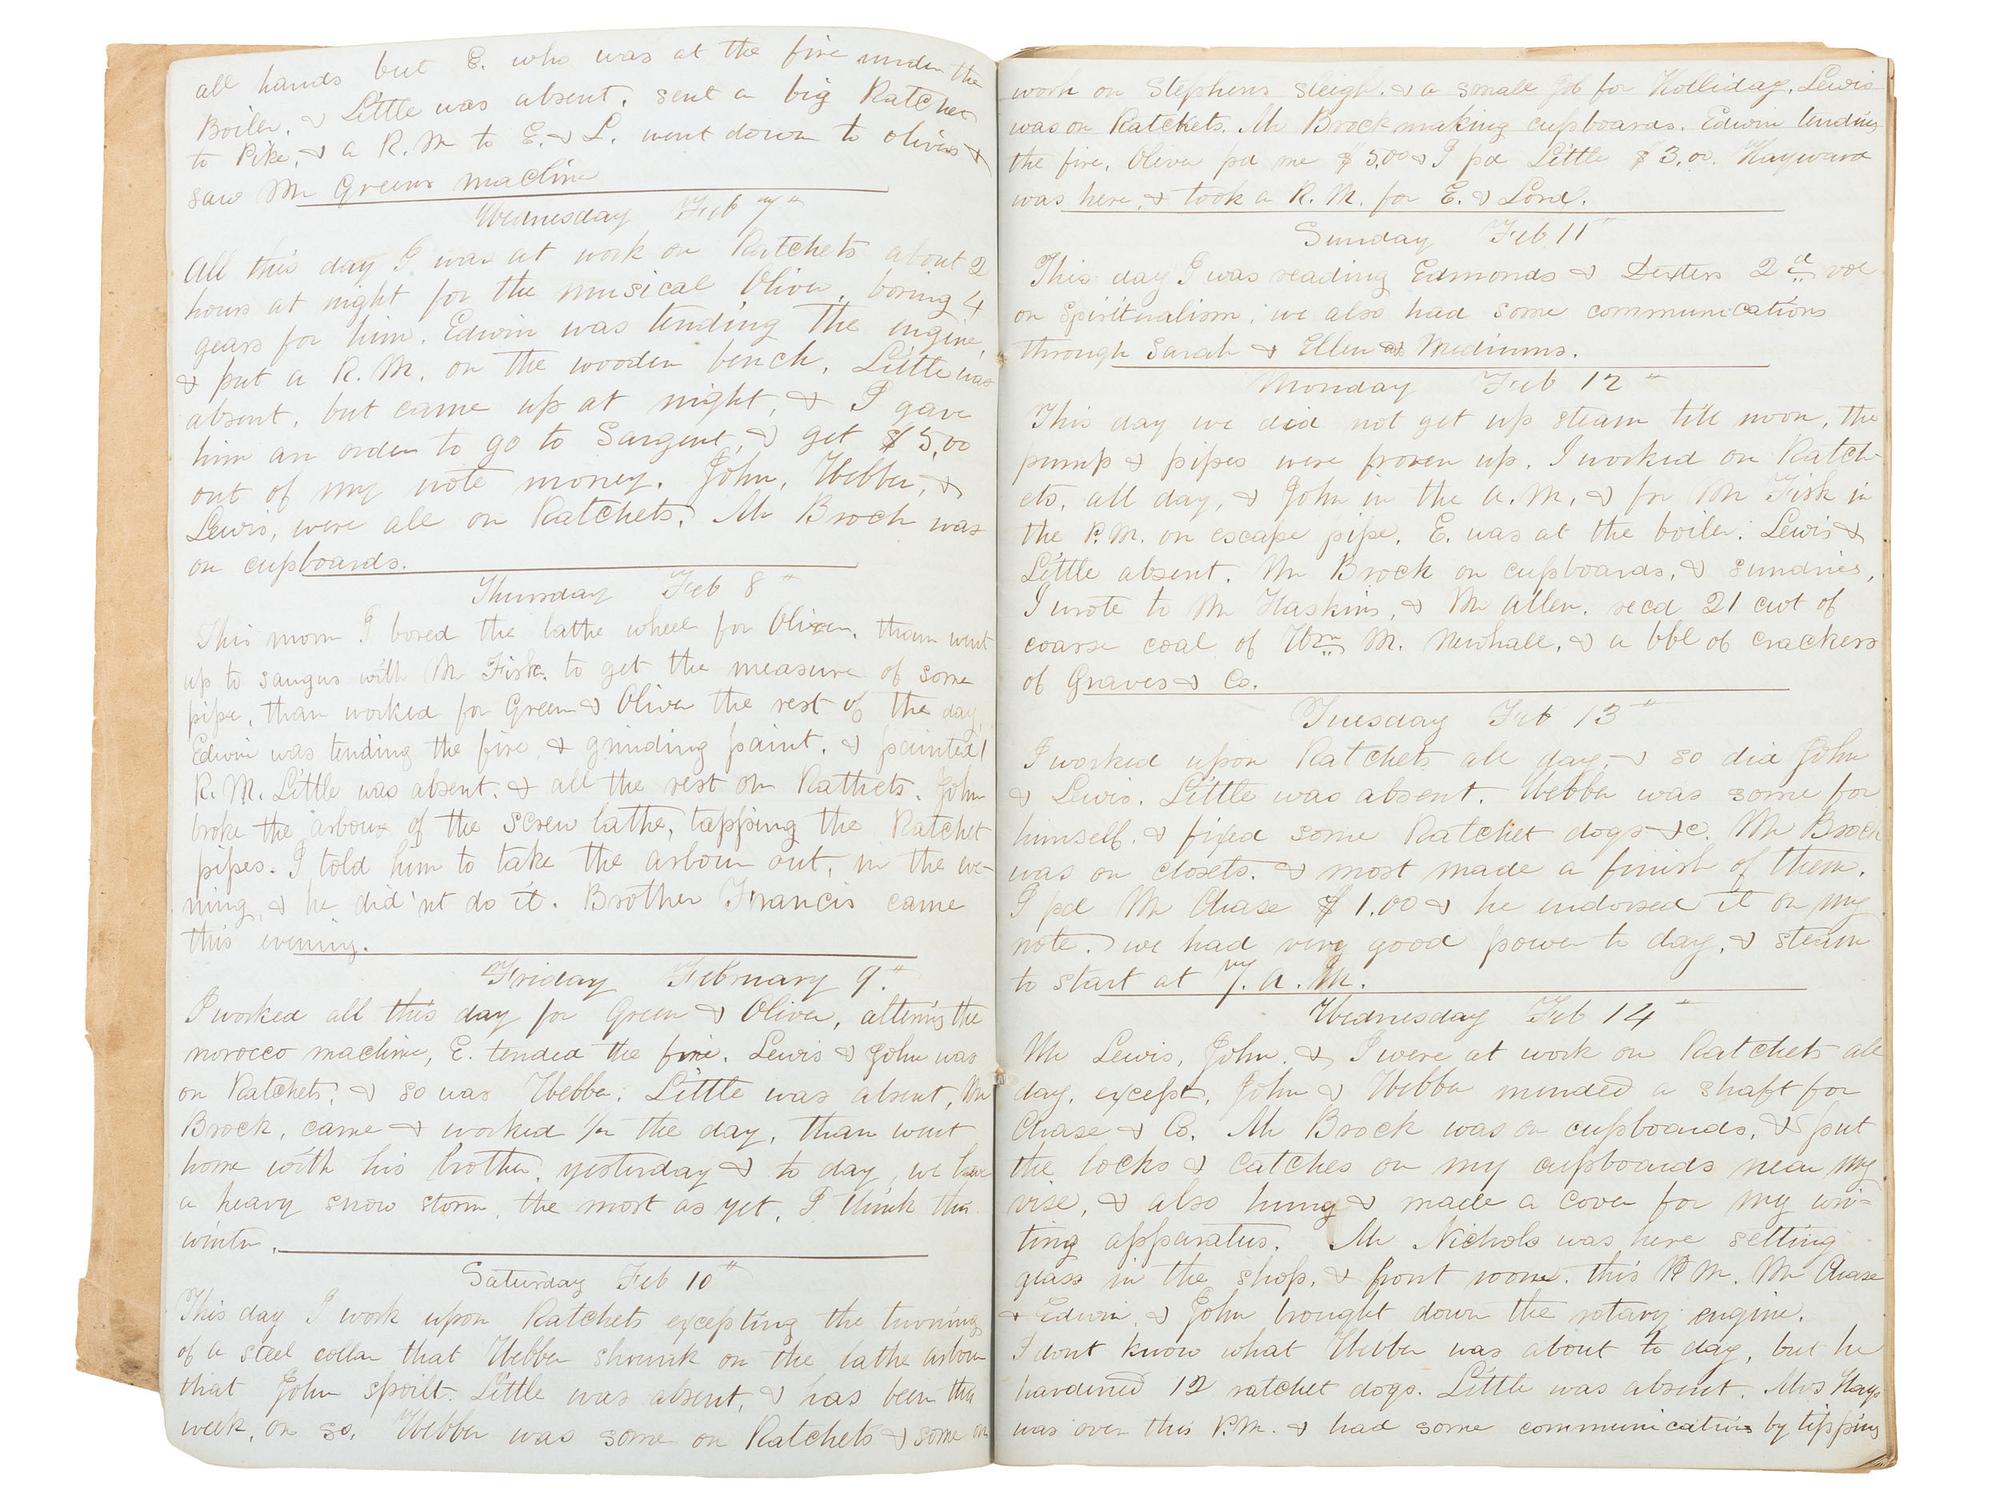 all hands but E. who was at the fire under the
Boiler, & Little was absent. sent a big Ratchet
to Pike, & a R. M to E. & L. went down to olivers &
saw Mr Greens machine
Wednesday Feb 7th
All this day I was at work on Ratchets about 2
hours at night for the musical Oliver, boring 4
gears for him. Edwin was tending the engine,
& put a R. M. on the wooden bench. Little was
absent, but came up at night, & I gave
him an order to go to Sargent, & get $5,00
out of my note money. John, Webber, &
Lewis, were all on Ratchets. Mr Brock was
on cupboards.
Thursday Feb 8th
This morn I bored the lathe wheel for Oliver. than went
up to saugus with Mr Fisk. to get the measure of some
pipe, than worked for Green & Oliver the rest of the day.
Edwin was tending the fire & grinding paint. & painted 1
R. M. Little was absent. & all the rest on Ratchets. John
broke the arbour of the screw lathe, tapping the Ratchet
pipes. I told him to take the arbour out, in the eve-
ning, & he did'nt do it. Brother Francis came
this evening.
Friday February 9th.
I worked all this day for Green & Oliver, altering the
morocco machine, E. tended the fire. Lewis & John was
on Ratchets, & so was Webber. Little was absent, Mr
Brock, came & worked 1/2 the day, than went
home with his brother. yesterday & to day, we have
a heavy snow storm, the most as yet, I think this
winter.
Saturday Feb 10th
This day I work upon Ratchets excepting the turning
of a steel collar that Webber shrunk on the lathe arbour
that John spoilt. Little was absent, & has been this
week, or so. Webber was some on Ratchets & some on
work on Stephens sleigh. & a small Job for Holliday. Lewis
was on Ratchets. Mr Brock making cupboards. Edwin tending
the fire. Oliver pd me $5,00 & I pd Little $3,00. Hayward
was here, & took a R. M. for E. & Lord.
Sunday Feb 11th
This day I was reading Edmonds & Dexters 2d vol
on Spiritualism, we also had some communications
through Sarah & Ellen as Mediums.
Monday Feb 12th
This day we did not get up steam till noon, the
pump & pipes were frozen up. I worked on Ratch-
ets, all day, & John in the A. M. & for Mr Fisk in
the P. M. on escape pipe. E. was at the boiler. Lewis &
Little absent. Mr Brock on cupboards, & sundries,
I wrote to Mr Haskins, & Mr Allen. recd 21 cwt of
coarse coal of Wm M. Newhall, & a bbl of crackers
of Graves & Co.
Tuesday Feb 13th
I worked upon Ratchets all day, & so did John
& Lewis. Little was absent. Webber was some for
himself. & fixed some Ratchet dogs &c. Mr Brock
was on closets. & most made a finish of them.
I pd Mr Chase $1.00 & he indorsed it on my
note. we had very good power to day, & steam
to start at 7. A. M.
Wednesday Feb 14th
Mr Lewis, John. & I were at work on Ratchets all
day, except, John & Webber minded a shaft for
Chase & Co. Mr Brock was on cupboards, & put
the locks & catches on my cupboards near my
vise, & also hung & made a cover for my wri-
ting apparatus. Mr Nichols was here setting
glass in the shop, & front room. this P. M. Mr Chase
& Edwin, & John brought down the rotary engine.
I dont know what Webber was about to day, but he
hardened 12 ratchet dogs. Little was absent. Mrs Hays
was over this P. M. & had some communications by tipping